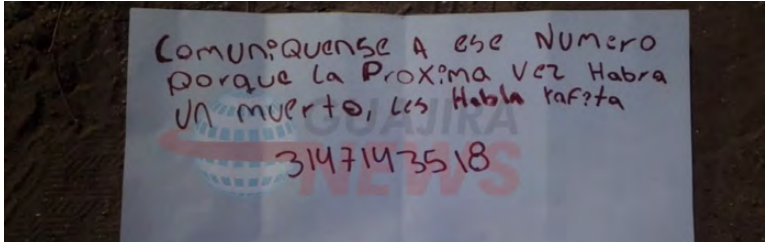 Comuniquense A ese Numero
porque la Proxima Vez Habra
un muerto, les Habla rafita
3147143518
GUAJIRA
NEWS